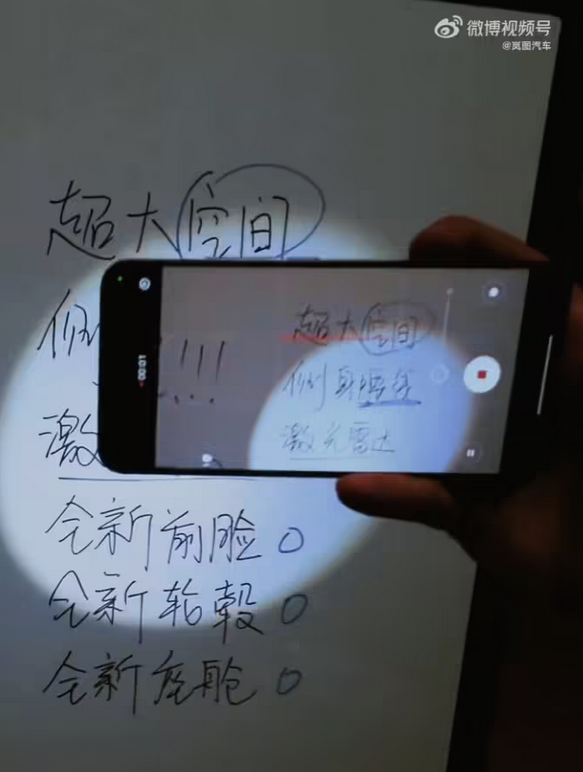 微博视频号
@岚图汽车
超大空间
侧
激
全新前脸0
全新轮毂0
全新座舱0
00:01
!!!
超大空间
侧身腰线
激光雷达